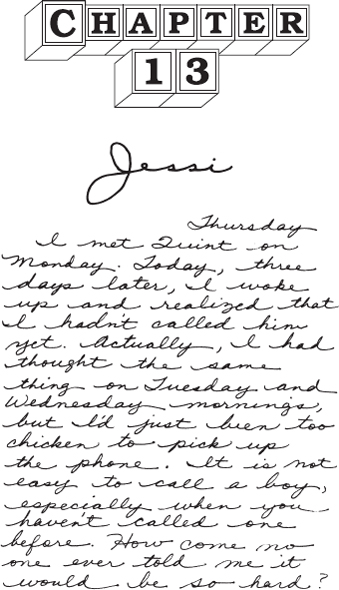 CHAPTER
13
Jessi
Thursday
I met Quint on
Monday. Today, three
days later, I woke
up and realized that
I hadn't called him
yet. Actually, I had
thought the same
thing on Tuesday and
Wednesday mornings,
but I'd just been too
chicken to pick up
the phone. It is not
easy to call a boy,
especially when you
haven't called one
before. How come no
one ever told me it
would be so hard?